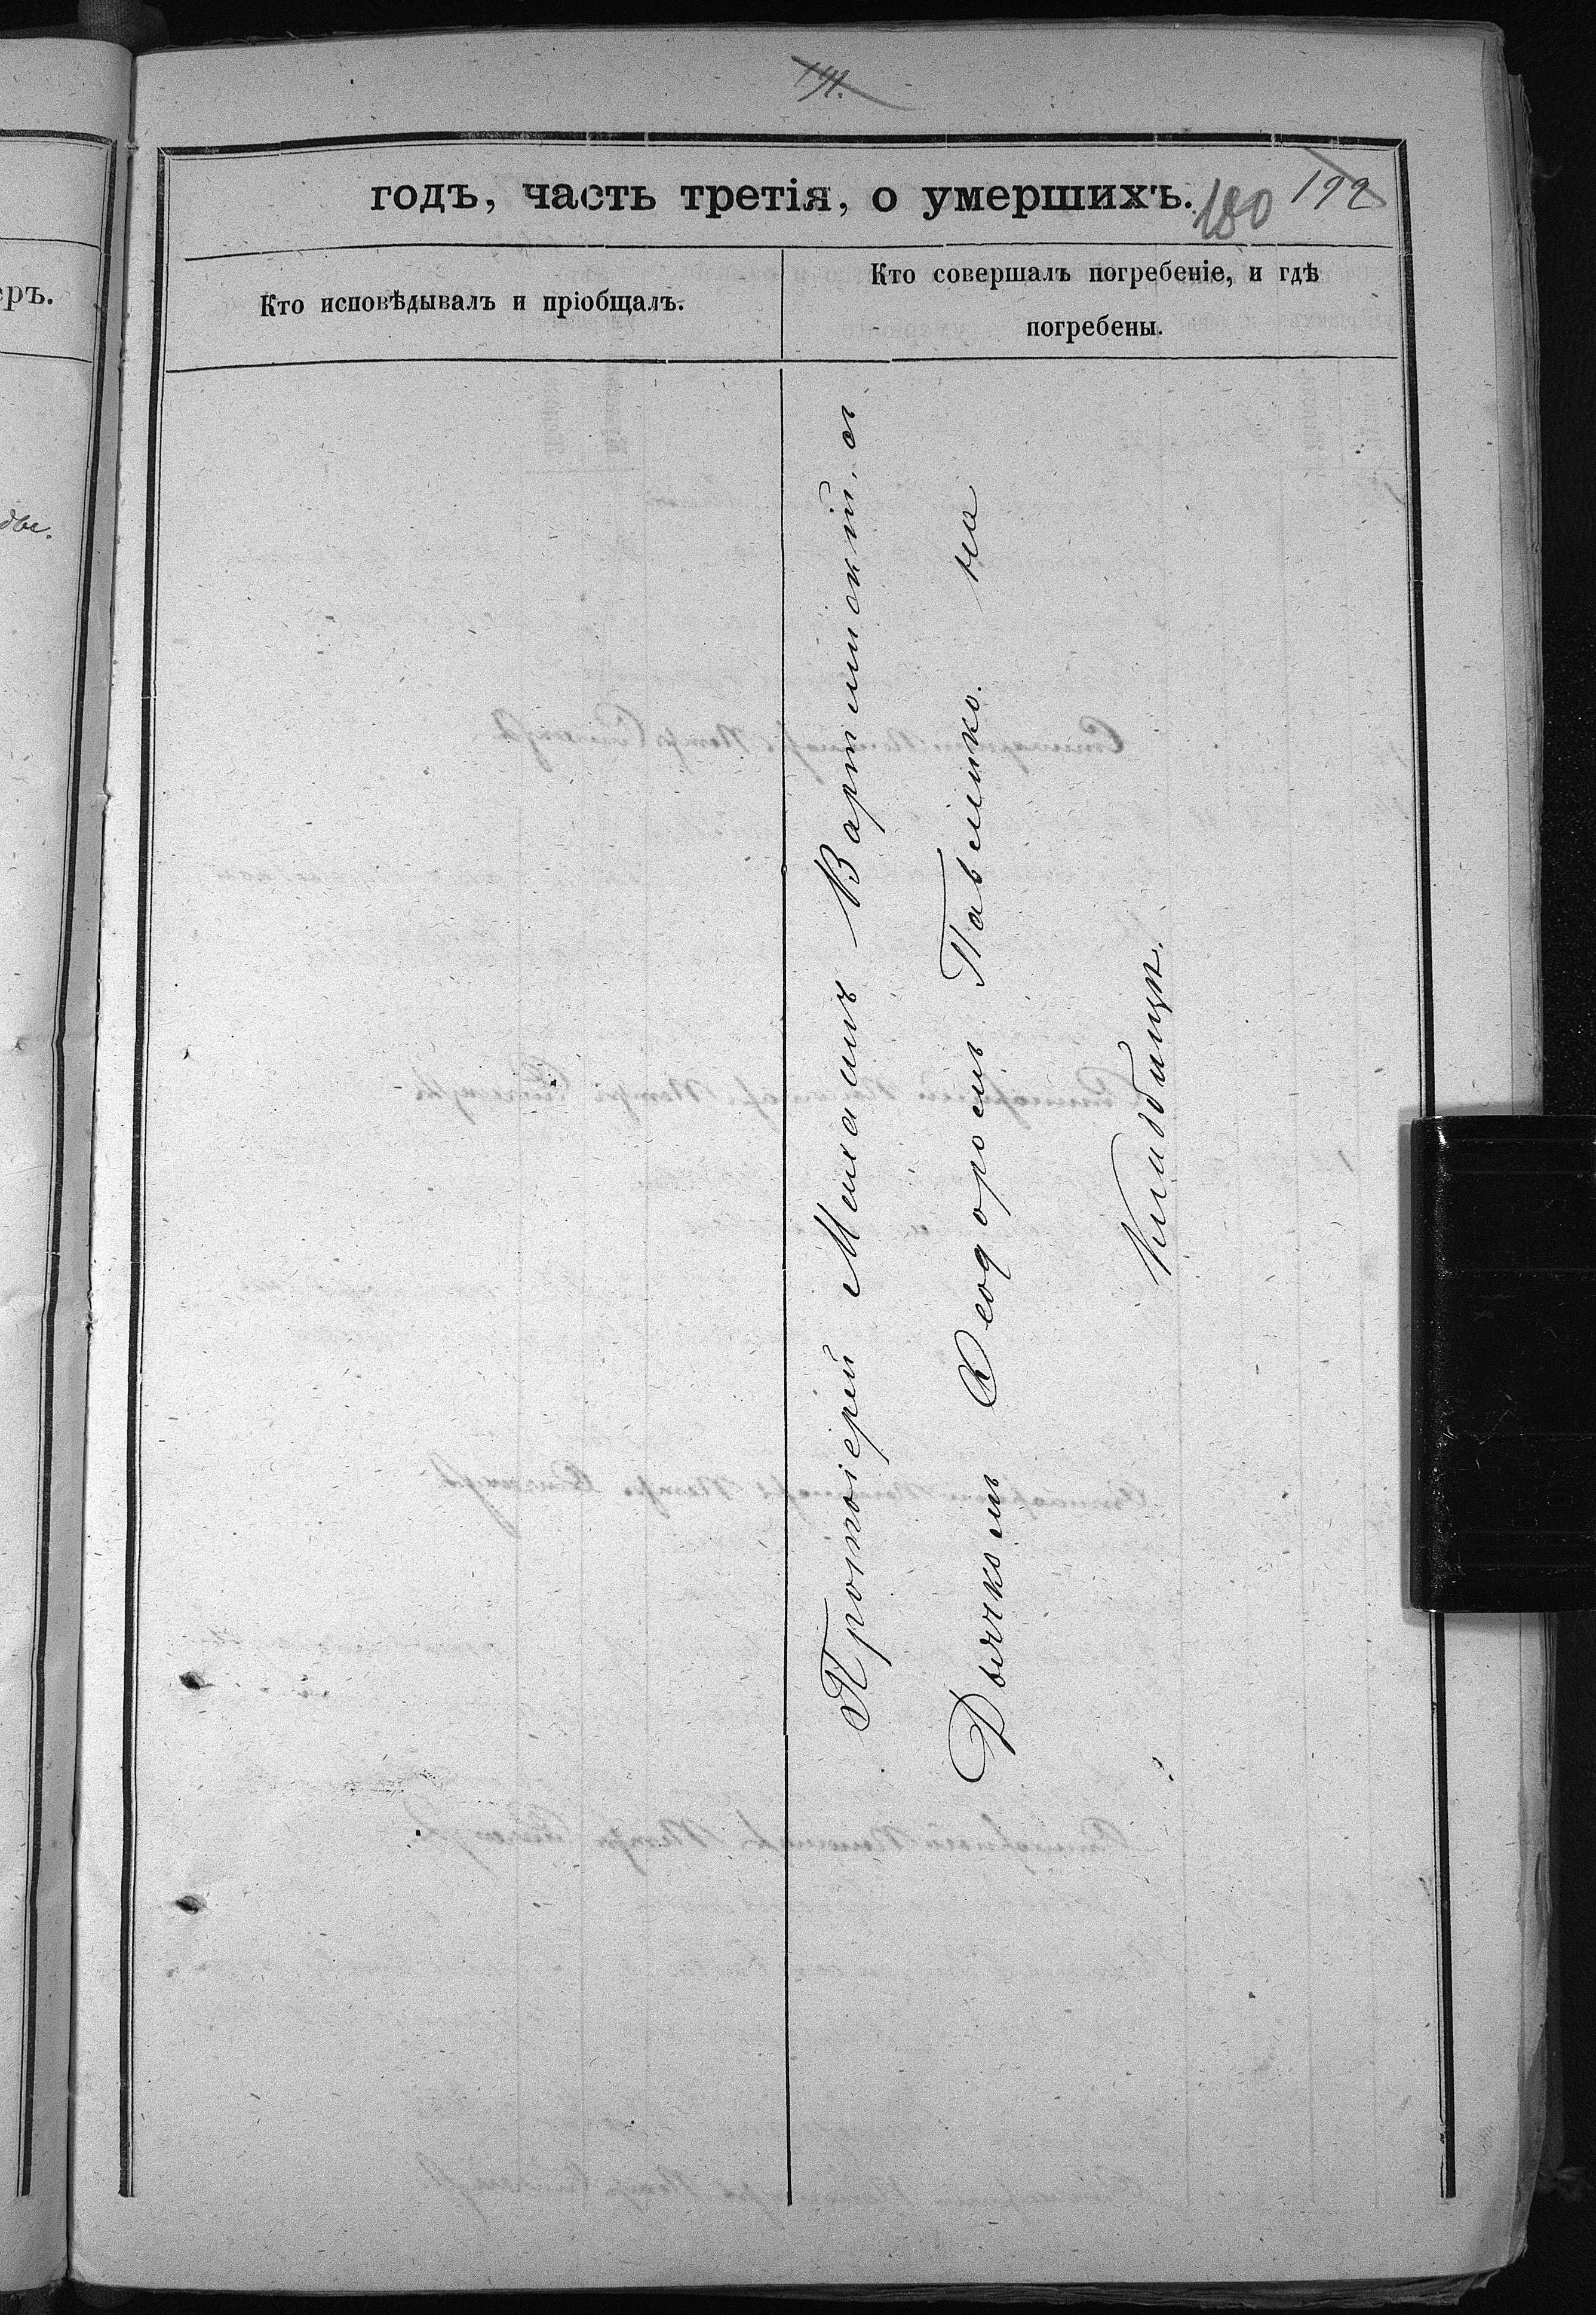 191.
годъ, часть третія, о умершихъ.
180
192
Кто исповѣдывалъ и пріобщалъ.
Кто совершалъ погребеніе, и гдѣ
погребены.
Протоіерей Михаилъ Вартминскій, съ
Дьячкомъ Ѳеодоромъ Павленко. на
Кладбищѣ.
еръ.